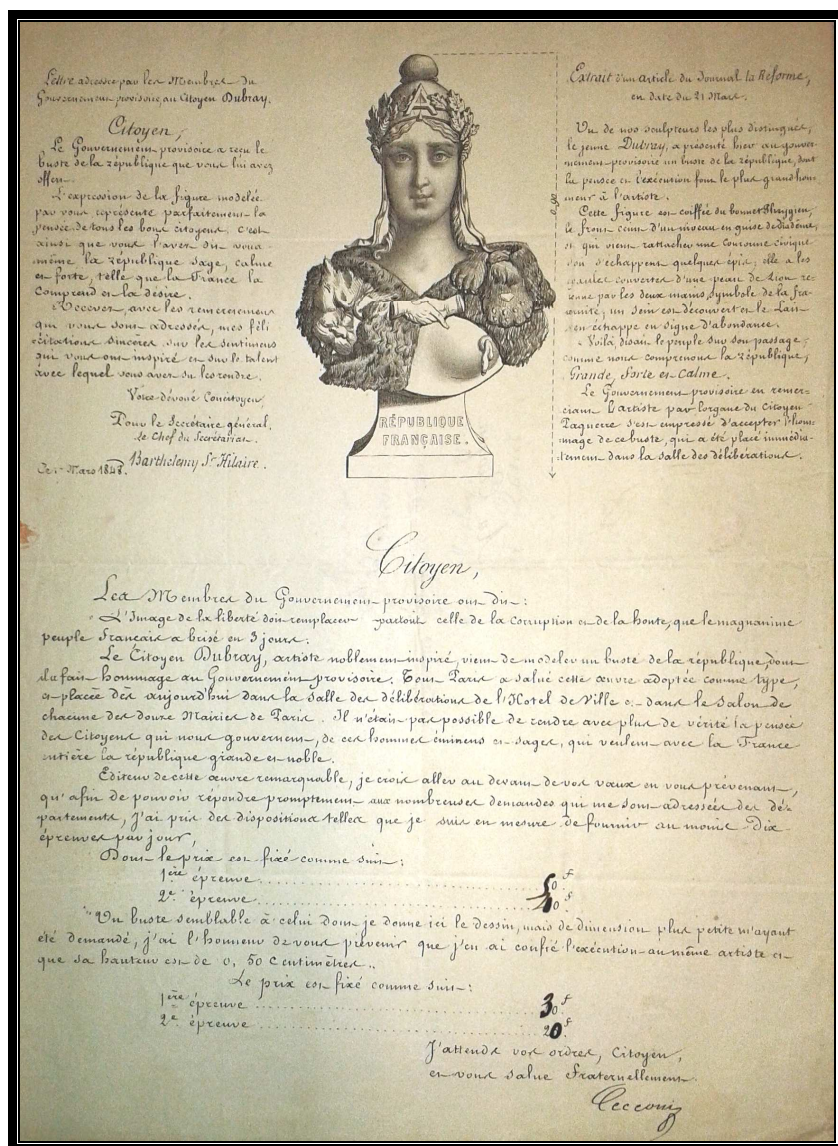 Lettre adressée par les Membres du
Gouvernement provisoire, au Citoyen Dubray.
Citoyen,
Le Gouvernement provisoire a reçu le
buste de la république que vous lui avez
offert.
L'expression de la figure modelée
par vous représente parfaitement la
pensée de tous les bons citoyens, c'est
ainsi que vous l'avez dit vous
même la république sage, calme
et forte, telle que la France la
comprend et la désire.
Recevez, avec les remerciemens
qui vous sont adressés, mes féli
citations sincères sur les sentimens
qui vous ont inspiré et sur le talent
avec lequel vous avez su les rendre.
Votre dévoué Concitoyen
Pour le Secrétaire général,
le Chef du Secrétariat.
Barthelemy St Hilaire.
Ce Mars 1848.
RÉPUBLIQUE
FRANÇAISE.
0,90
Extrait d'un article du Journal la Réforme,
en date du 21 Mars.
Un de nos sculpteurs les plus distingués,
le jeune Dubray, a présenté hier au gouver-
nement provisoire un buste de la république, dont
la pensée et l'exécution font le plus grand hon-
neur à l'artiste.
Cette figure est coiffée du bonnet Phrygien,
le front ceint d'un niveau en guise de diadème,
et qui vient rattacher une couronne civique
d'où s'échappent quelques épis, elle a les
épaules couvertes d'une peau de Lion re-
tenue par les deux mains, symbole de la fra-
ternité, un sein est découvert et le Lait
s'en échappe en signe d'abondance.
Voilà, disait le peuple sur son passage,
comme nous comprenons la république,
Grande, Forte et Calme.
Le Gouvernement provisoire en remer-
ciant l'artiste par l'organe du Citoyen
Paguerre s'est empressé d'accepter l'hom-
mage de ce buste, qui a été placé immédia-
tement dans la salle des délibérations.
Citoyen,
Les Membres du Gouvernement provisoire ont dit :
"L'Image de la liberté doit remplacer partout celle de la corruption et de la honte, que le magnanime
peuple Français a brisé en 3 jours.
Le Citoyen Dubray, artiste noblement inspiré, vient de modeler un buste de la république, dont
il a fait hommage au Gouvernement provisoire. Tout Paris a salué cette œuvre adoptée comme type,
et placée dès aujourd'hui dans la salle des délibérations de l'Hotel de Ville et dans le Salon de
chacune des douze Mairies de Paris. Il n'était pas possible de rendre avec plus de vérité la pensée
des Citoyens qui nous gouvernent, de ces hommes éminens et sages, qui veulent avec la France
entière la république grande et noble.
Editeur de cette œuvre remarquable, je crois aller au devant de vos vœux en vous prévenant,
qu'afin de pouvoir répondre promptement aux nombreuses demandes qui me sont adressées des dé-
partements, J'ai pris des dispositions telles que je suis en mesure de fournir au moins Dix
épreuves par jour,
Dont le prix est fixé comme suit :
1ère épreuve 50 f
2e épreuve 40 f
"Un buste semblable à celui dont je donne ici le dessin, mais de dimension plus petite m'ayant
été demandé, j'ai l'honneur de vous prévenir que j'en ai confié l'exécution au même artiste et
que sa hauteur est de 0, 50 Centimètres.
Le prix est fixé comme suit :
1ère épreuve 30 f
2e épreuve 20 f
J'attends vos ordres, Citoyen,
et vous salue Fraternellement
Cecconi